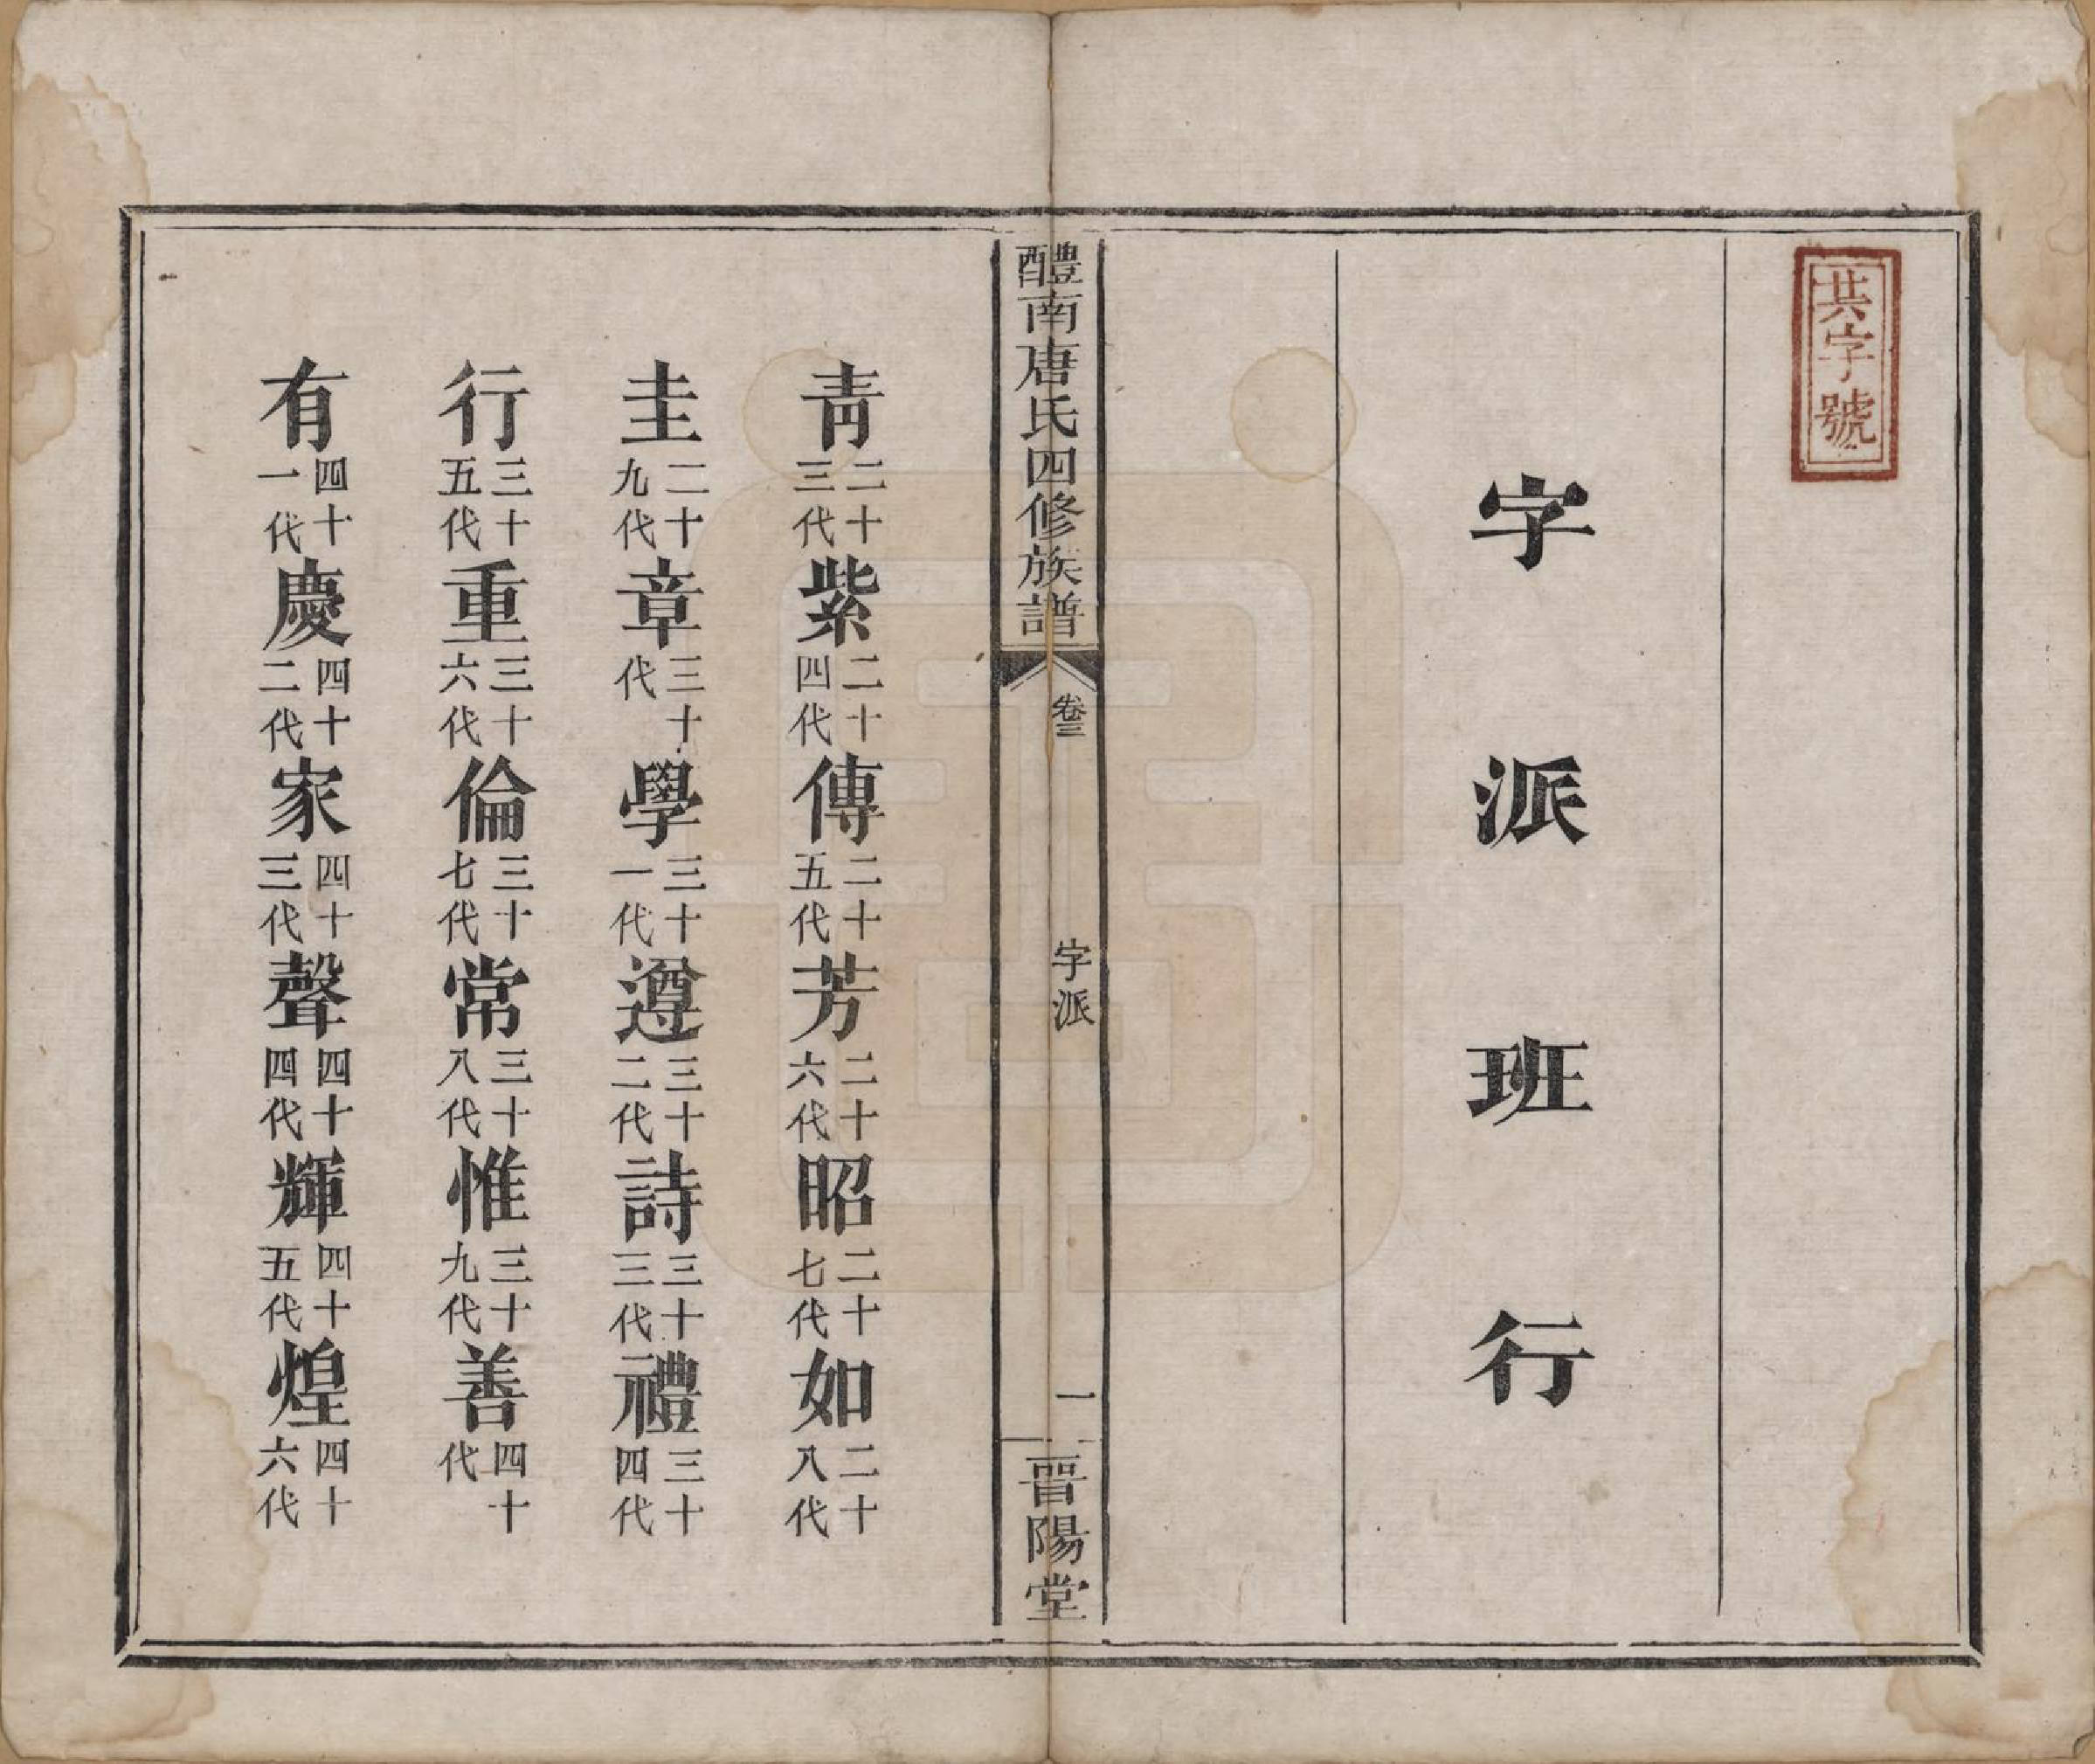 共字號
字派班行
醴南唐氏四修族譜
卷三
字派
一
晉陽堂
青二十三代紫二十四代傳二十五代芳二十六代昭二十七代如二十八代
圭二十九代章三十代學三十一代遵三十二代詩三十三代禮三十四代
行三十五代重三十六代倫三十七代常三十八代惟三十九代善四十代
有四十一代慶四十二代家四十三代聲四十四代輝四十五代煌四十六代